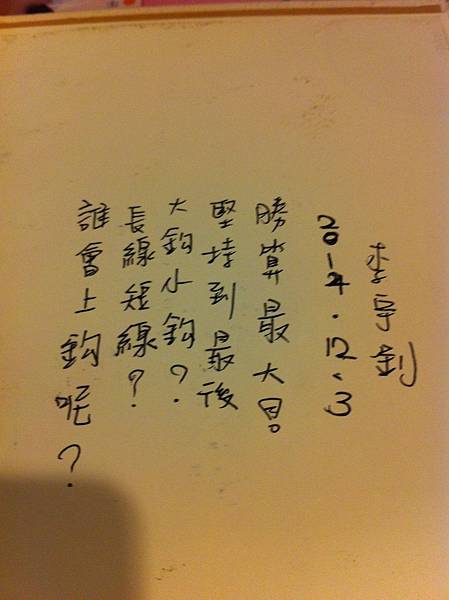 李宇
2014.12.3
勝算最大
堅持到最後
大鈎小鈎？
長線短線？
誰會上鈎呢？